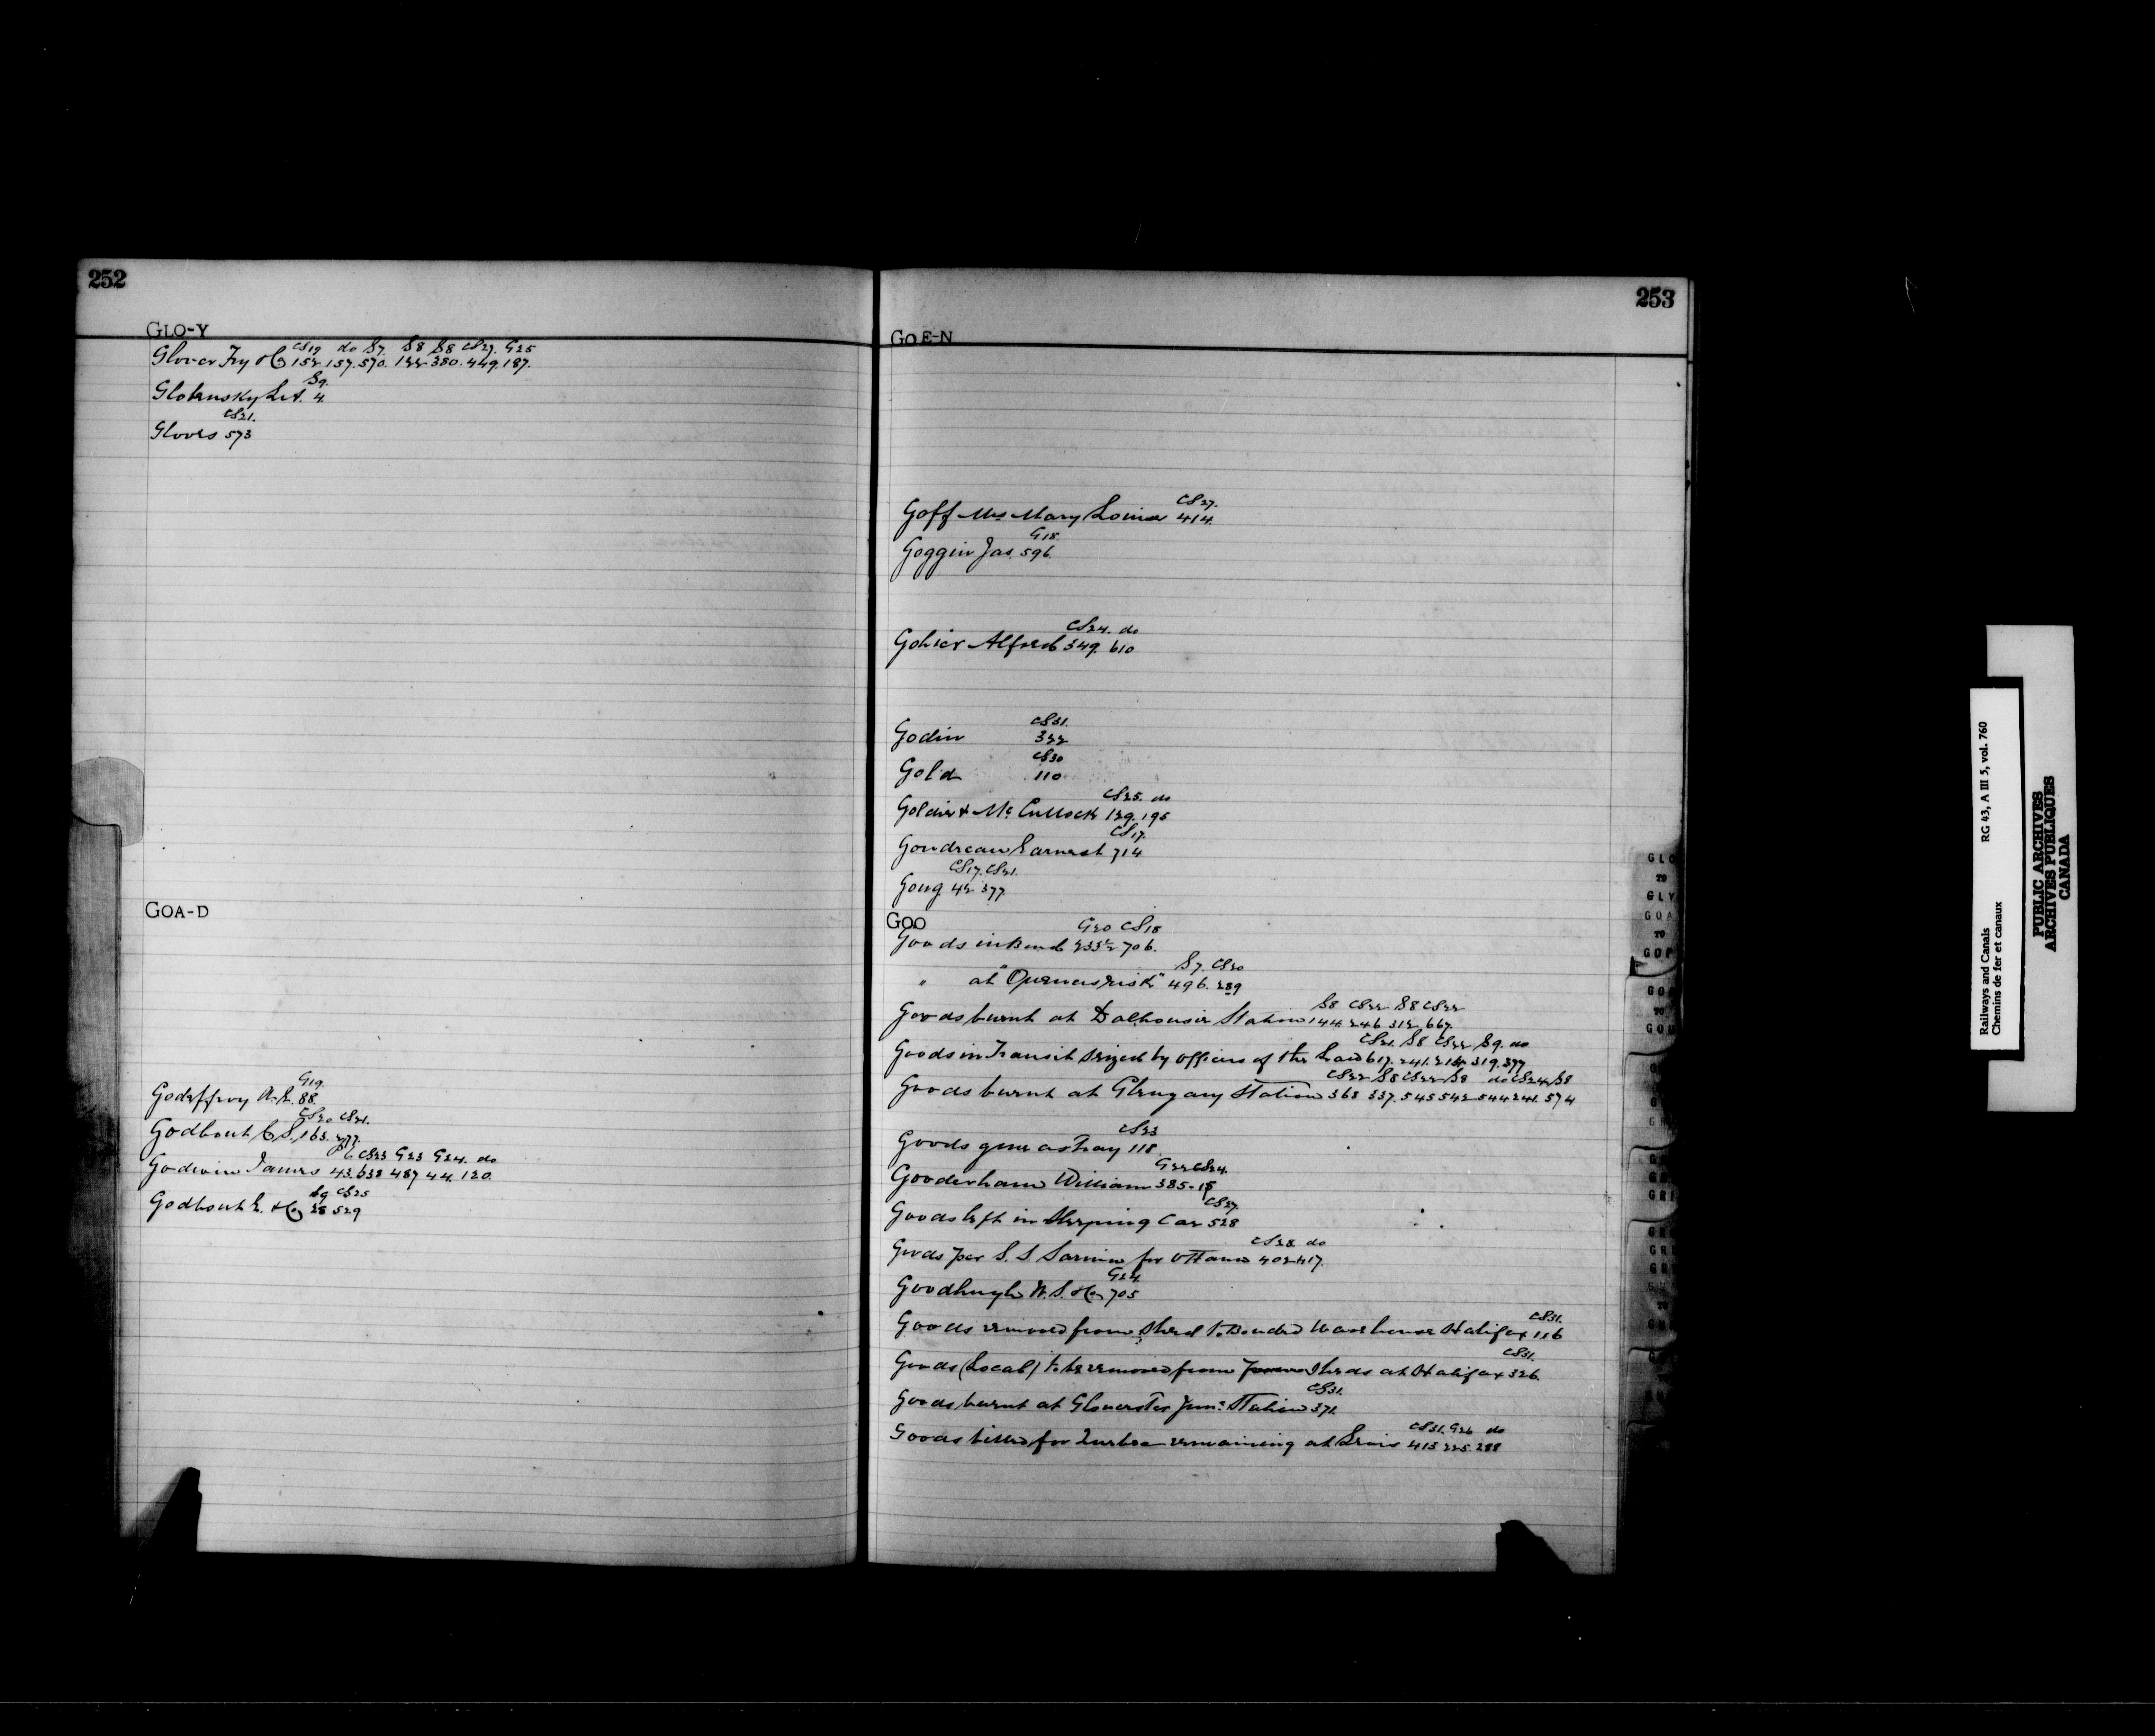 252
GLO-Y
CS19 do S7. S8 S8 CS27. G25
Glover Fry & Co 152. 157. 570. 122 380. 449. 187.
S9.
4.
CS21.
Gloves 573
GOA-D
G19.
Godeffroy A. E. 88.
CS20 CS21.
Godbout C S. 163. 277.
CS23 G23 G24. do
Godwin James 43. 638 487 44. 120.
S9 CS25
Godbout E. & Co 529
253
GOE-N
CS27.
Goff Mrs Mary Louisa 414.
G18.
Goggin Jas. 596.
CS24. do
Gohier Alfred 349. 610
CS31.
Godin 322
CS30
Gold 110
CS25. do
Goldie & McCullock 129. 195
CS17.
Goudreau Earnest 714
CS17. CS21.
Gong 42 377
GOO
G20 CS18
Goods in Bond 233½ 706.
S7. CS20
" at "Owners risk" 496. 289
S8 CS22 S8 CS22
Goods burnt at Dalhousie Station 144. 246 312 667.
CS21. S8 CS22 S9. do
Goods in Transit seized by officers of the Law 617. 241. 319. 377
CS22 S8 CS22 S8 do CS24 S8
Goods burnt at Glengary Station 368 337. 545 542 544 241. 574
CS23
Goods gone astray 118.
G22 CS24.
Gooderham William 385. 15
CS27.
Goods left in Sleeping Car 528
CS28. do
Goods per S. S. Sarnia for Ottawa 402 417.
G24.
Goodhugh W. S. & Co 705
CS31.
Goods removed from Shed to Bonded Warehouse Halifax 116
CS31.
Goods (Local) to be removed from Sheds at Halifax 326.
CS31.
Goods burnt at Gloucester Junc: Station 371.
CS31. G26 do
Goods billed for Quebec remaining at Levis 413 225. 288
GLO
TO
GLY
GOA
TO
GOP
Railways and Canals RG 43, A III 5, vol. 760
Chemins de fer et canaux
PUBLIC ARCHIVES
ARCHIVES PUBLIQUES
CANADA